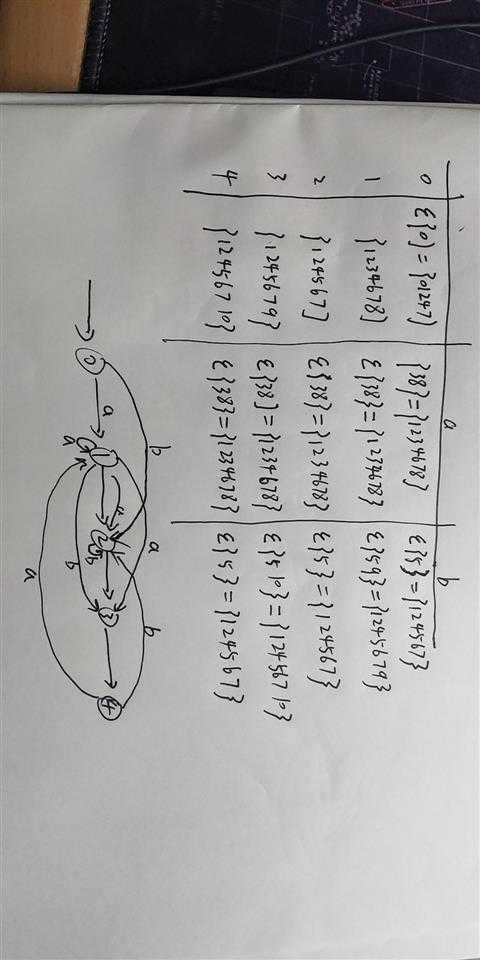 a b
0 ε{0} = {01247} {38} = {1234678} ε{5} = {124567}
1 {1234678} ε{38} = {1234678} ε{59} = {1245679}
2 {124567} ε{38} = {1234678} ε{5} = {124567}
3 {1245679} ε{38} = {1234678} ε{510} = {12456710}
4 {12456710} ε{38} = {1234678} ε{5} = {124567}
b
a
b
0 a 1 2 3 4
a
b
b
a